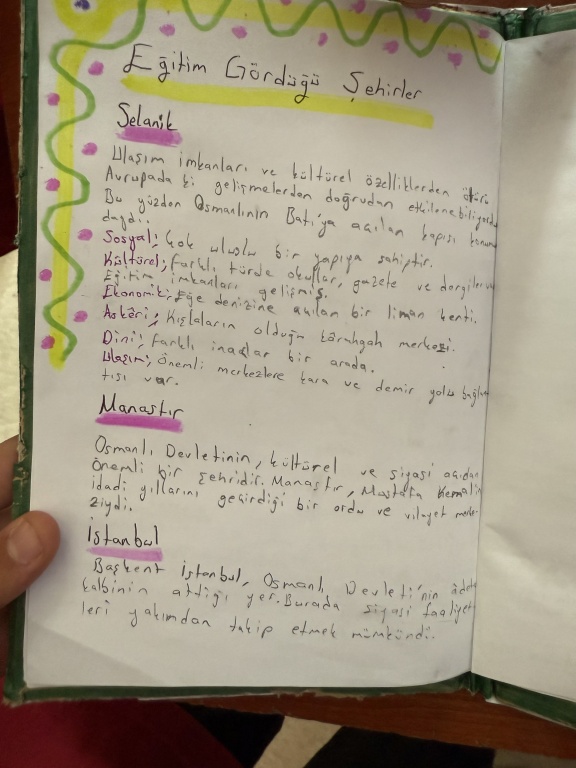 Eğitim Gördüğü Şehirler
Selanik
Ulaşım imkanları ve kültürel özelliklerden ötürü
Avrupada ki gelişmelerden doğrudan etkilenebiliyordu
Bu yüzden Osmanlının Batı'ya açılan kapısı konum
daydı.
Sosyal; Çok uluslu bir yapıya sahiptir.
Kültürel; farklı türde okullar, gazete ve dergiler var
Eğitim imkanları gelişmiş.
Ekonomik; Ege denizine açılan bir liman kenti.
Askêri; Kışlaların olduğu karargah merkezi.
Dini; farklı inaçlar bir arada.
Ulaşım; önemli merkezlere kara ve demir yolu bağlan
tısı var.
Manastır
Osmanlı Devletinin, kültürel ve siyasi açıdan
önemli bir şehridir. Manastır, Mustafa Kemalin
idadi yıllarını geçirdiği bir ordu ve vilayet merke-
ziydi.
İstanbul
Başkent İstanbul, Osmanlı Devleti'nin adeta
kalbinin attığı yer. Burada siyasi faaliyet
leri yakından takip etmek mümkündü.